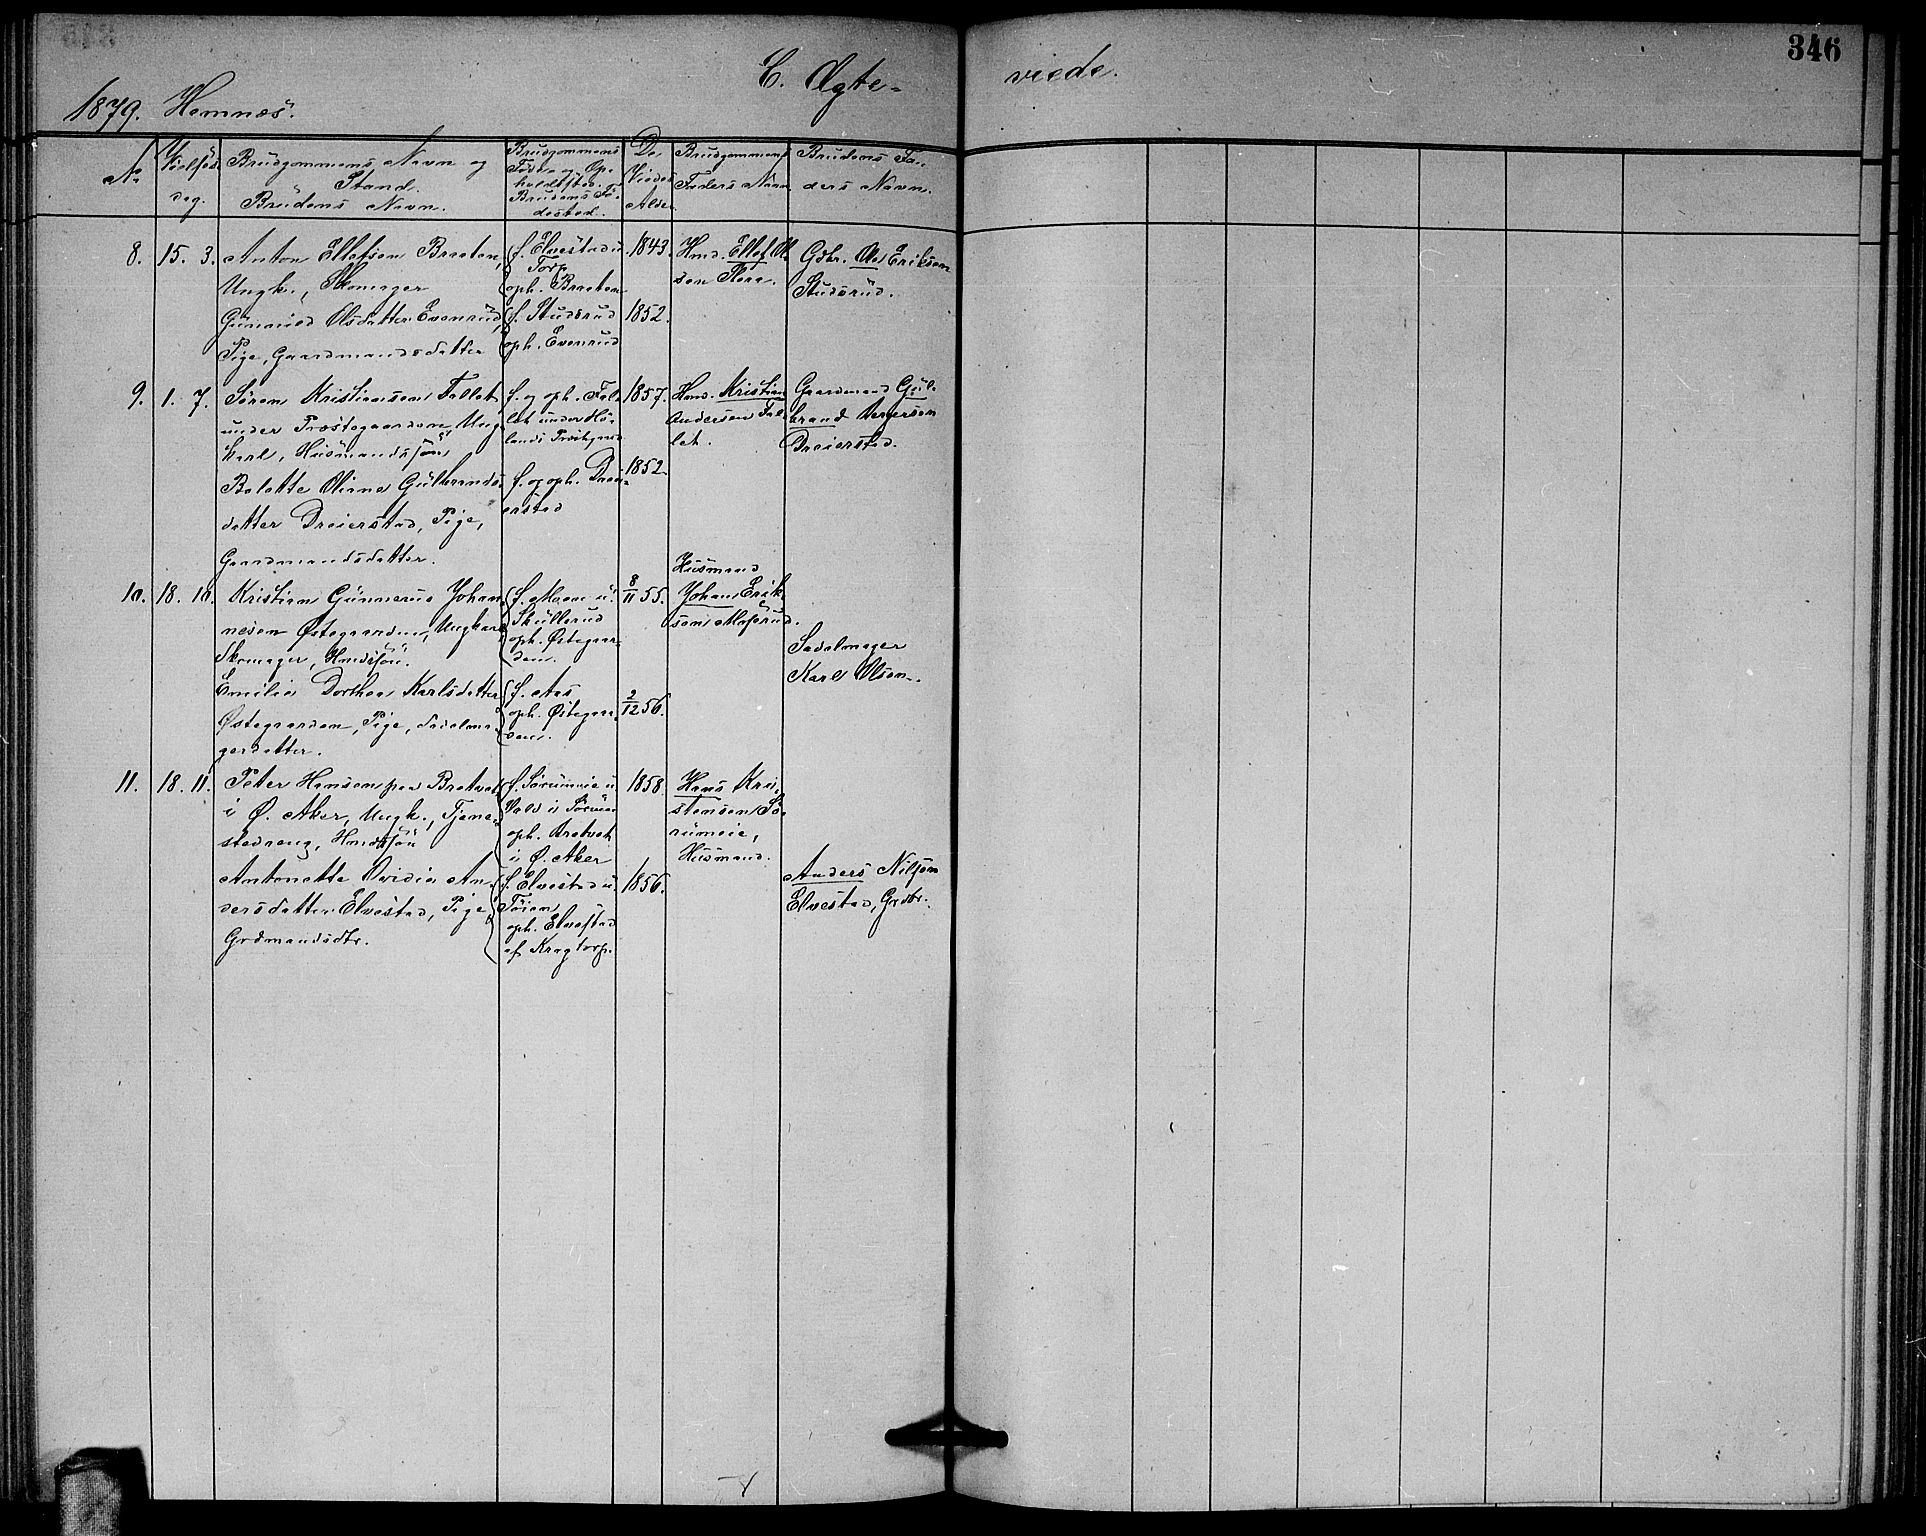 346
C. Ægte- viede.
1879. Hemnæs.
No
Vielses
dag.
Brudgommens Navn og
Stand.
Brudens Navn.
Brudgommens
Føde- og Op-
holdssted.
Brudens Fø-
dested.
De
Viedes
Alder
Brudgommens
Faders Navn
Brudens Fa-
ders Navn.
8. 15. 3.
Anton Ellefsen Braaten,
Ungk., Skomager
Gunnild Olsdatter Evenrud,
Pige, Gaardmandsdatter
f. Elvestad u.
Torp
oph. Braaten
f. Studsrud
oph. Evenrud
1843.
1852.
Hmd. Ellef Ol-
sen
Gdbr. Ole Eriksen
Studsrud.
9. 1. 7.
Søren Kristiansen Fallet
under Præstegaarden, Ung-
karl, Husmandssøn
Bolette Oliane Gulbrands-
datter Dreierstad, Pige,
Gaardmandsdatter.
f. og oph. Fal-
let under Hø-
lands Præstegaard
f. og oph. Drei-
erstad
1857.
1852.
Hmd. Kristian
Andersen Fal-
let.
Gaardmand Gul-
brand
Dreierstad.
10. 18. 10.
Kristian Gunnerus Johan-
nesen Østegaarden, Ungkarl
Skomager, Hmdssøn.
Emilie Dorthea Karlsdatter
Østegaarden, Pige, Sadelma-
gerdatter.
f. Moen u.
Skullerud
oph. Østegaar-
den.
f. Aas
oph. Østegaar-
den.
8/11 55.
2/12 56.
Husmand
Johan Erik-
sen
Sadelmager
Karl Olsen.
11. 18. 11.
Peter Hansen paa Bratvet
i Ø. Aker, Ungk., Tjene-
stedreng, Hmdssøn
Antonette Ovidia An-
dersdatter Elvestad, Pige
Grdmandsdtr.
f. Sørumeie u.
Vald i Sørum
oph. Bratvet
i Ø. Aker
f. Elvestad u.
Töien
oph. Elvestad
af Kragtorp.
1858.
1856.
Hans Kri-
stensen Sø-
rumeie,
Husmand.
Anders Nilsen
Elvestad, Grdbr.